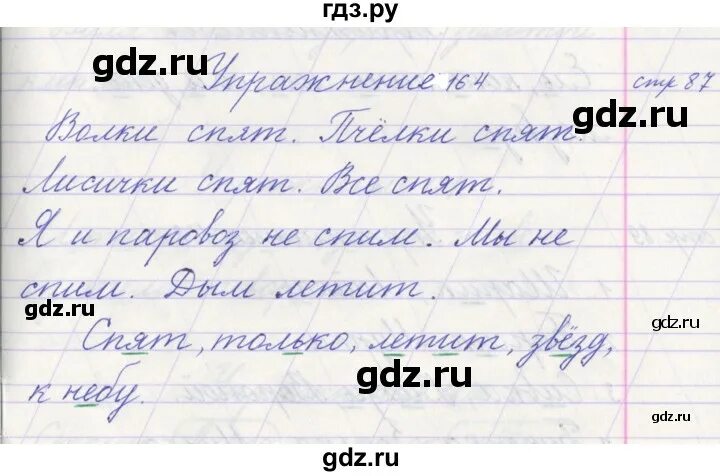 гдз.ру
gdz.ru
Упражнение 164 стр 87
gdz.ru
Волки спят. Пчёлки спят.
Лисички спят. Все спят.
Я и паровоз не спим. Мы не
gdz.ru
спим. Дым летит.
gdz.ru
Спят, только, летит, звёзд,
gdz.ru
к небу.
gdz.ru
gdz.ru